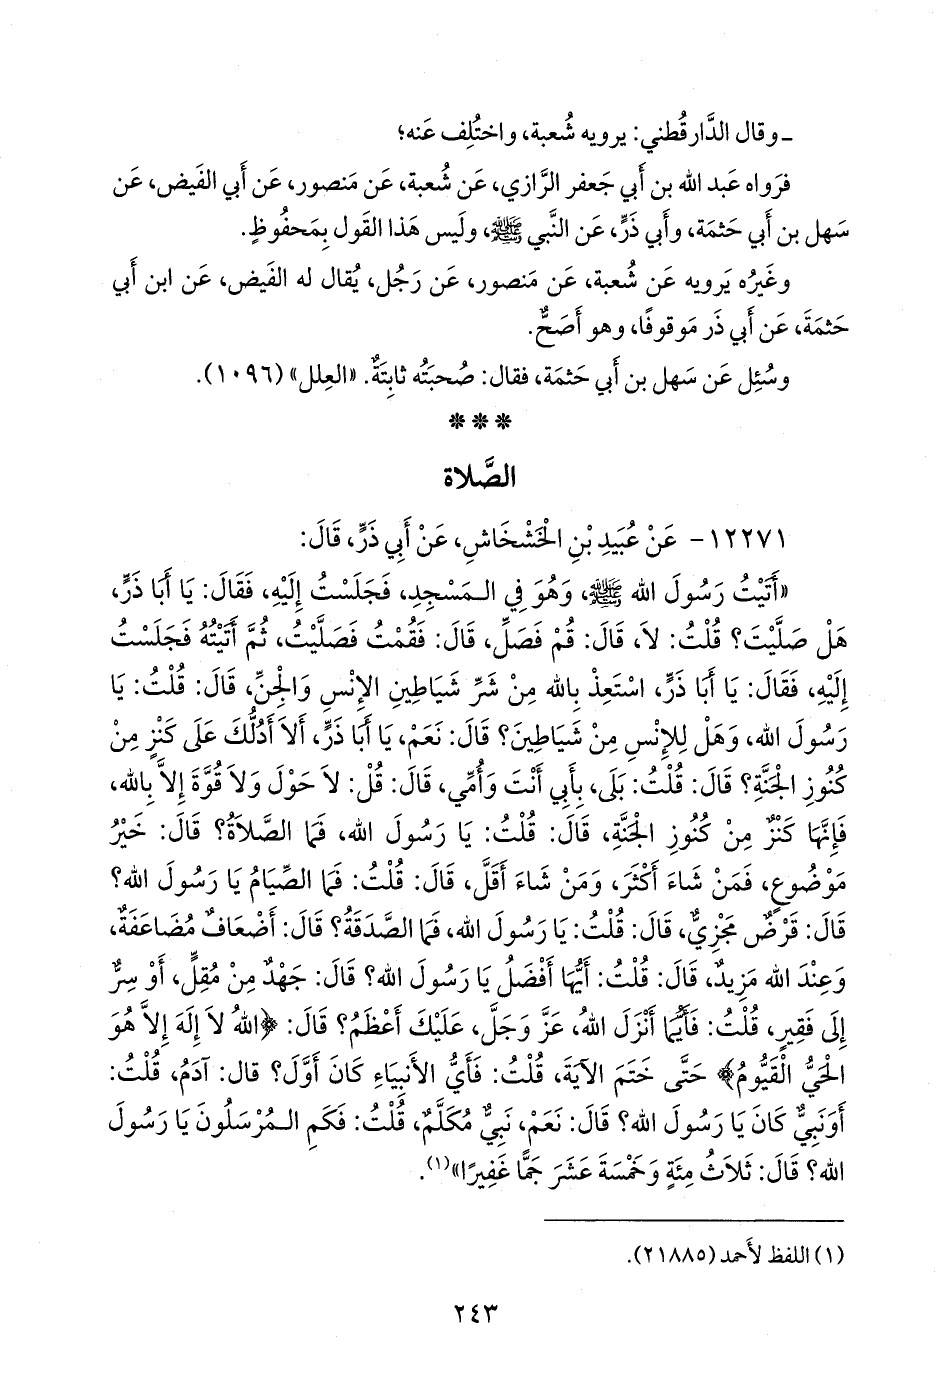 ـ وقال الدَّارقُطني: يرويه شُعبة، واختُلِف عَنه؛
فرَواه عَبد الله بن أبي جَعفر الرَّازي، عَن شُعبة، عَن مَنصور، عَن أبي الفَيض، عَن
سَهل بن أبي حَثمَة، وأبي ذَرٍّ، عَن النَّبي ﷺ، ولَيس هَذا القَول بِمَحفُوظٍ.
وغَيرُه يَرويه عَن شُعبة، عَن مَنصور، عَن رَجُل، يُقال له الفَيض، عَن ابن أبي
حَثمَةَ، عَن أبي ذَر مَوقوفًا، وهو أَصَحُّ.
وسُئِل عَن سَهل بن أبي حَثمَة، فقال: صُحبَتُه ثابِتَةٌ. «العِلل» (١٠٩٦).
* * *
الصَّلاة
١٢٢٧١- عَنْ عُبَيدِ بْنِ الخَشْخَاشِ، عَنْ أَبِي ذَرٍّ، قَالَ:
«أَتَيْتُ رَسُولَ الله ﷺ، وَهُوَ فِي الـمَسْجِدِ، فَجَلَسْتُ إِلَيْهِ، فَقَالَ: يَا أَبَا ذَرٍّ،
هَلْ صَلَّيْتَ؟ قُلْتُ: لاَ، قَالَ: قُمْ فَصَلِّ، قَالَ: فَقُمْتُ فَصَلَّيْتُ، ثُمَّ أَتَيْتُهُ فَجَلَسْتُ
إِلَيْهِ، فَقَالَ: يَا أَبَا ذَرٍّ، اسْتَعِذْ بِالله مِنْ شَرِّ شَيَاطِينِ الإِنْسِ وَالْجِنِّ، قَالَ: قُلْتُ: يَا
رَسُولَ الله، وَهَلْ لِلإِنْسِ مِنْ شَيَاطِينَ؟ قَالَ: نَعَمْ، يَا أَبَا ذَرٍّ، أَلاَ أَدُلُّكَ عَلَى كَنْزٍ مِنْ
كُنُوزِ الجَنَّةِ؟ قَالَ: قُلْتُ: بَلَى، بِأَبِي أَنْتَ وَأُمِّي، قَالَ: قُلْ: لاَ حَوْلَ وَلاَ قُوَّةَ إِلاَّ بِالله،
فَإِنَّهَا كَنْزٌ مِنْ كُنُوزِ الجَنَّةِ، قَالَ: قُلْتُ: يَا رَسُولَ الله، فَمَا الصَّلاَةُ؟ قَالَ: خَيْرُ
مَوْضُوعٍ، فَمَنْ شَاءَ أَكْثَرَ، وَمَنْ شَاءَ أَقَلَّ، قَالَ: قُلْتُ: فَمَا الصِّيَامُ يَا رَسُولَ الله؟
قَالَ: قَرْضٌ مَجْزِيٌّ، قَالَ: قُلْتُ: يَا رَسُولَ الله، فَمَا الصَّدَقَةُ؟ قَالَ: أَضْعَافٌ مُضَاعَفَةٌ،
وَعِنْدَ الله مَزِيدٌ، قَالَ: قُلْتُ: أَيُّهَا أَفْضَلُ يَا رَسُولَ الله؟ قَالَ: جَهْدٌ مِنْ مُقِلٍّ، أَوْ سِرٌّ
إِلَى فَقِيرٍ، قُلْتُ: فَأَيُّمَا أَنْزَلَ اللهُ، عَزَّ وَجَلَّ، عَلَيْكَ أَعْظَمُ؟ قَالَ: ﴿اللهُ لاَ إِلَهَ إِلاَّ هُوَ
الحَيُّ الْقَيُّومُ﴾ حَتَّى خَتَمَ الآيَةَ، قُلْتُ: فَأَيُّ الأَنْبِيَاءِ كَانَ أَوَّلَ؟ قَال: آدَمُ، قُلْتُ:
أَوَنَبِيٌّ كَانَ يَا رَسُولَ الله؟ قَالَ: نَعَمْ، نَبِيٌّ مُكَلَّمٌ، قُلْتُ: فَكَمِ الـمُرْسَلُونَ يَا رَسُولَ
الله؟ قَالَ: ثَلاَثُ مِئَةٍ وَخَمْسَةَ عَشَرَ جَمًّا غَفِيرًا»(١).
(١) اللفظ لأَحمد (٢١٨٨٥).
٢٤٣